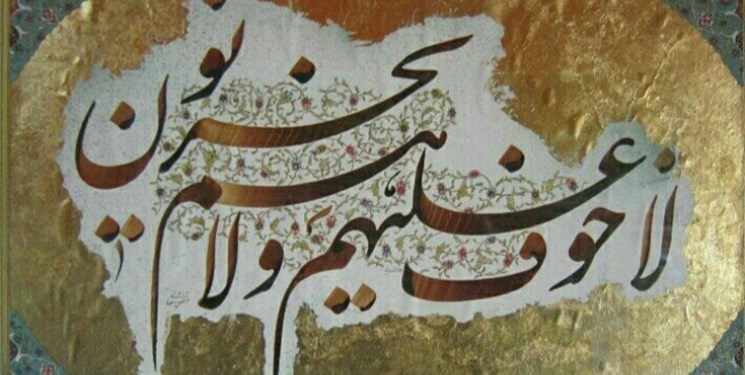 لا خوف علیهم ولا هم یحزنون